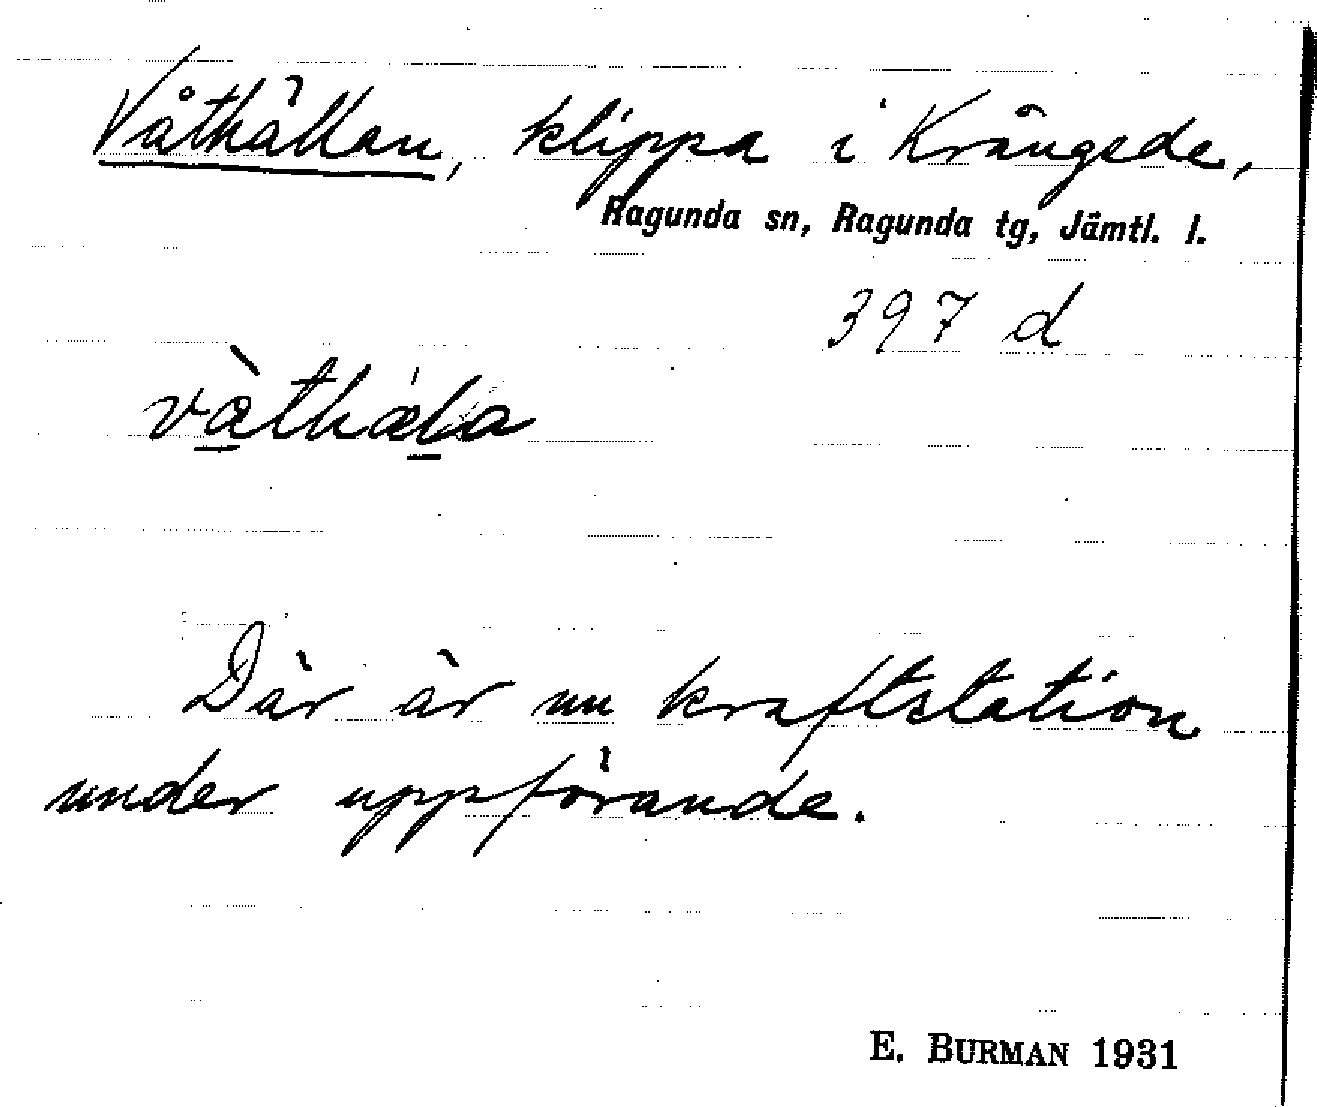 Våthällan, klippa i Krångede,
Ragunda sn, Ragunda tg, Jämtl. l.
397 d
vàthæla
Där är nu kraftstation
under uppförande.
E. BURMAN 1931